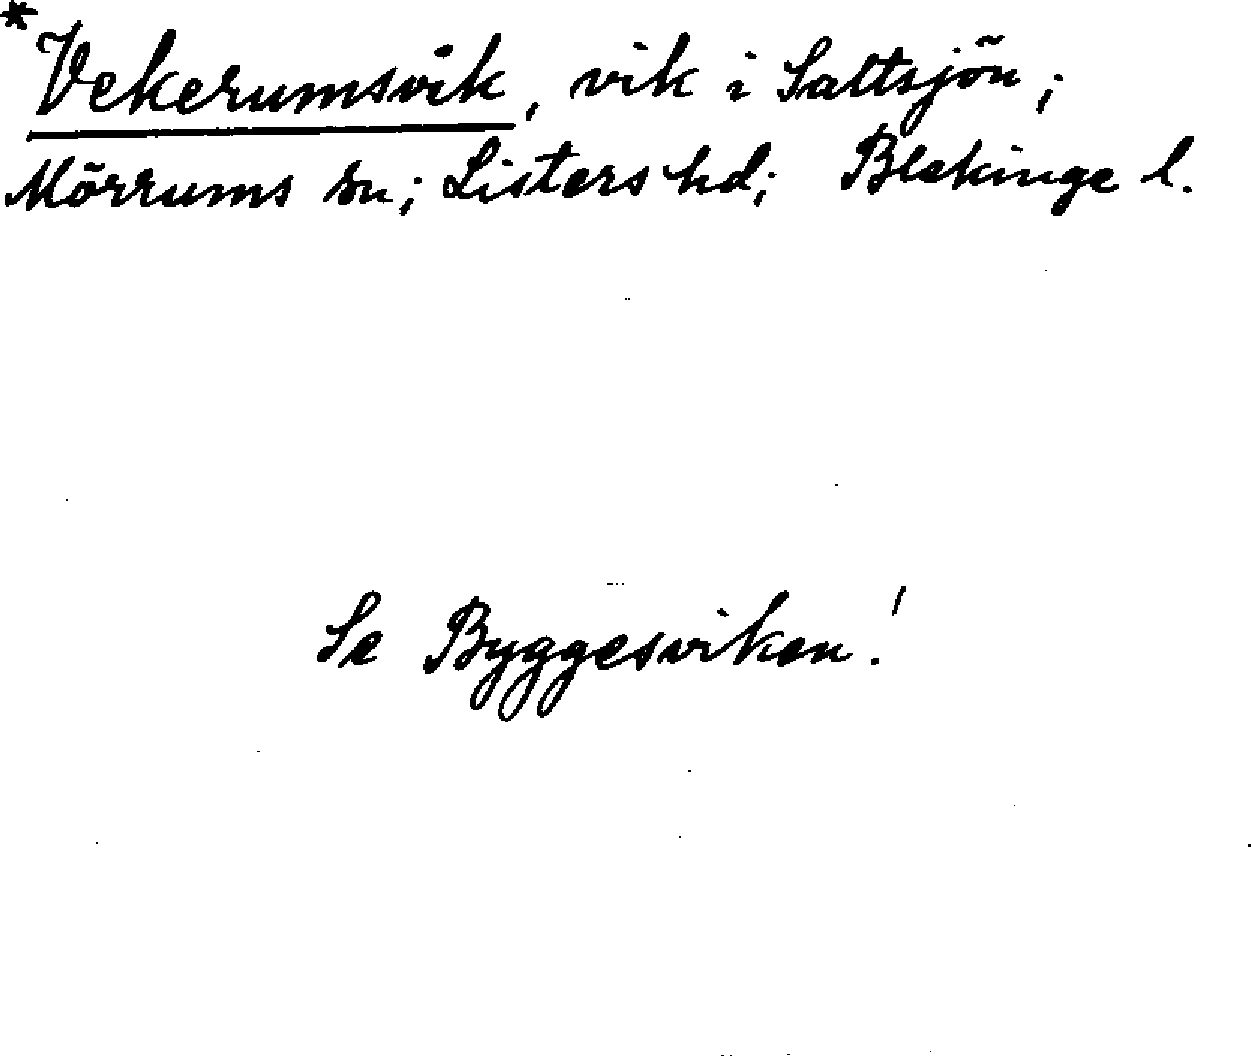 *Vekerumsvik, vik i Saltsjön;
Mörrums sn; Listers hd; Blekinge l.
Se Byggesviken!